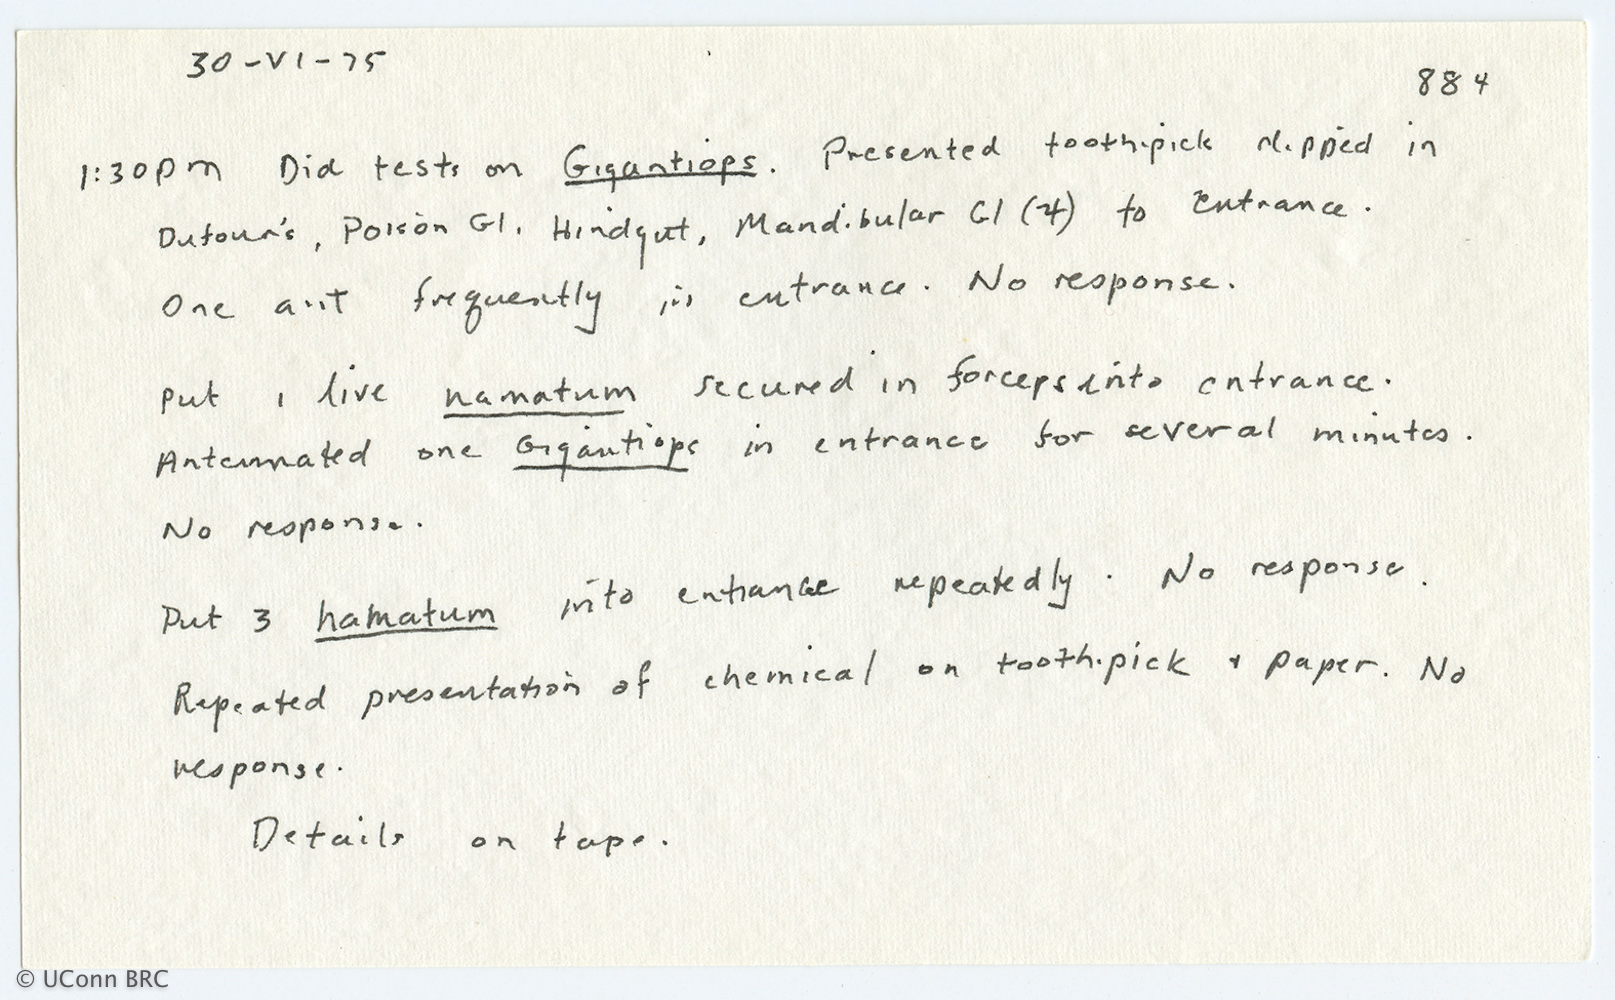 30-VI-75
884
1:30pm Did tests on Gigantiops. Presented toothpick dipped in
Dufour's, Poison Gl. Hindgut, Mandibular Gl (4) to entrance.
One ant frequently in entrance. No response.
Put 1 live hamatum secured in forceps into entrance.
Antennated one Gigantiops in entrance for several minutes.
No response.
Put 3 hamatum into entrance repeatedly. No response.
Repeated presentation of chemical on toothpick + paper. No
response.
Details on tape.
© UConn BRC